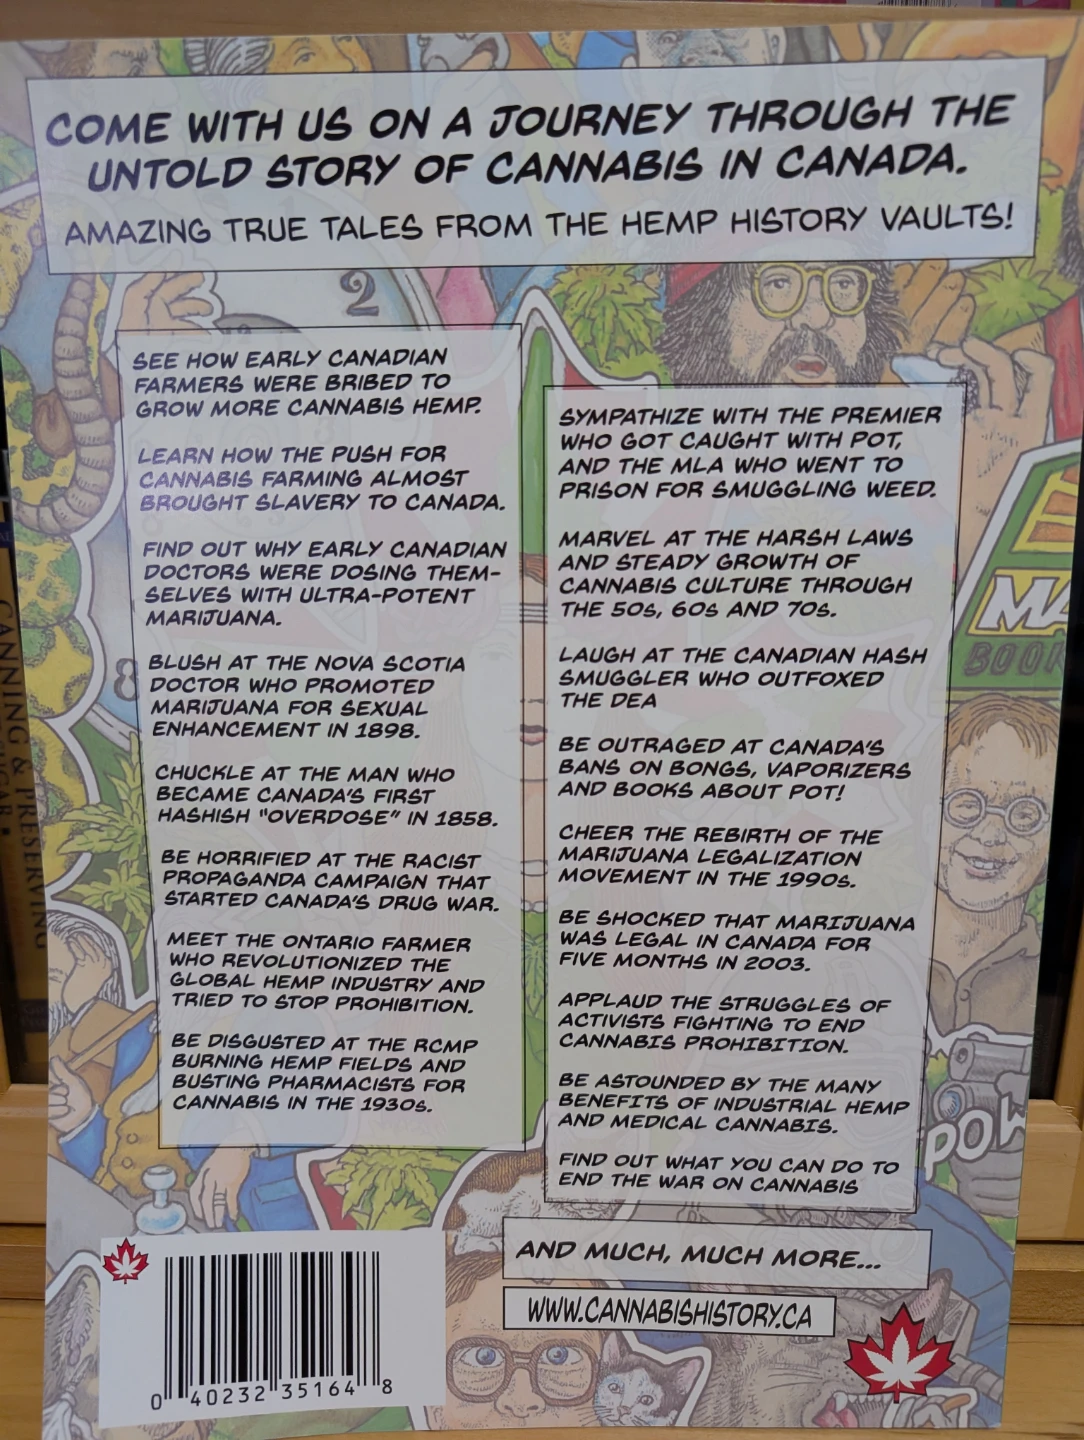 COME WITH US ON A JOURNEY THROUGH THE
UNTOLD STORY OF CANNABIS IN CANADA.
AMAZING TRUE TALES FROM THE HEMP HISTORY VAULTS!
2
8
SEE HOW EARLY CANADIAN
FARMERS WERE BRIBED TO
GROW MORE CANNABIS HEMP.
LEARN HOW THE PUSH FOR
CANNABIS FARMING ALMOST
BROUGHT SLAVERY TO CANADA.
FIND OUT WHY EARLY CANADIAN
DOCTORS WERE DOSING THEM-
SELVES WITH ULTRA-POTENT
MARIJUANA.
BLUSH AT THE NOVA SCOTIA
DOCTOR WHO PROMOTED
MARIJUANA FOR SEXUAL
ENHANCEMENT IN 1898.
CHUCKLE AT THE MAN WHO
BECAME CANADA'S FIRST
HASHISH "OVERDOSE" IN 1858.
BE HORRIFIED AT THE RACIST
PROPAGANDA CAMPAIGN THAT
STARTED CANADA'S DRUG WAR.
MEET THE ONTARIO FARMER
WHO REVOLUTIONIZED THE
GLOBAL HEMP INDUSTRY AND
TRIED TO STOP PROHIBITION.
BE DISGUSTED AT THE RCMP
BURNING HEMP FIELDS AND
BUSTING PHARMACISTS FOR
CANNABIS IN THE 1930s.
SYMPATHIZE WITH THE PREMIER
WHO GOT CAUGHT WITH POT,
AND THE MLA WHO WENT TO
PRISON FOR SMUGGLING WEED.
MARVEL AT THE HARSH LAWS
AND STEADY GROWTH OF
CANNABIS CULTURE THROUGH
THE 50s, 60s AND 70s.
LAUGH AT THE CANADIAN HASH
SMUGGLER WHO OUTFOXED
THE DEA
BE OUTRAGED AT CANADA'S
BANS ON BONGS, VAPORIZERS
AND BOOKS ABOUT POT!
CHEER THE REBIRTH OF THE
MARIJUANA LEGALIZATION
MOVEMENT IN THE 1990s.
BE SHOCKED THAT MARIJUANA
WAS LEGAL IN CANADA FOR
FIVE MONTHS IN 2003.
APPLAUD THE STRUGGLES OF
ACTIVISTS FIGHTING TO END
CANNABIS PROHIBITION.
BE ASTOUNDED BY THE MANY
BENEFITS OF INDUSTRIAL HEMP
AND MEDICAL CANNABIS.
FIND OUT WHAT YOU CAN DO TO
END THE WAR ON CANNABIS
AND MUCH, MUCH MORE...
WWW.CANNABISHISTORY.CA
0 40232 35164 8
MA
BOOK
POW
CANNING & PRESERVING